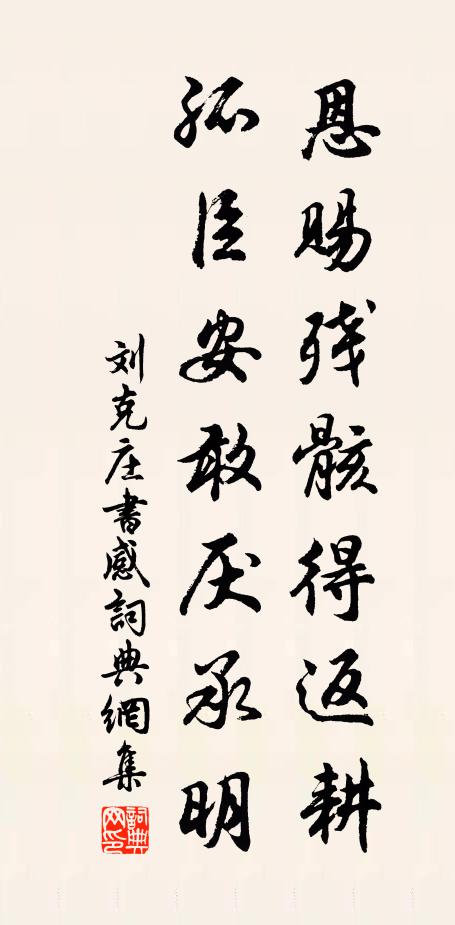 恩赐残骸得返耕
孤臣安敢厌承明
刘克庄書感詞典網集
詞典网印